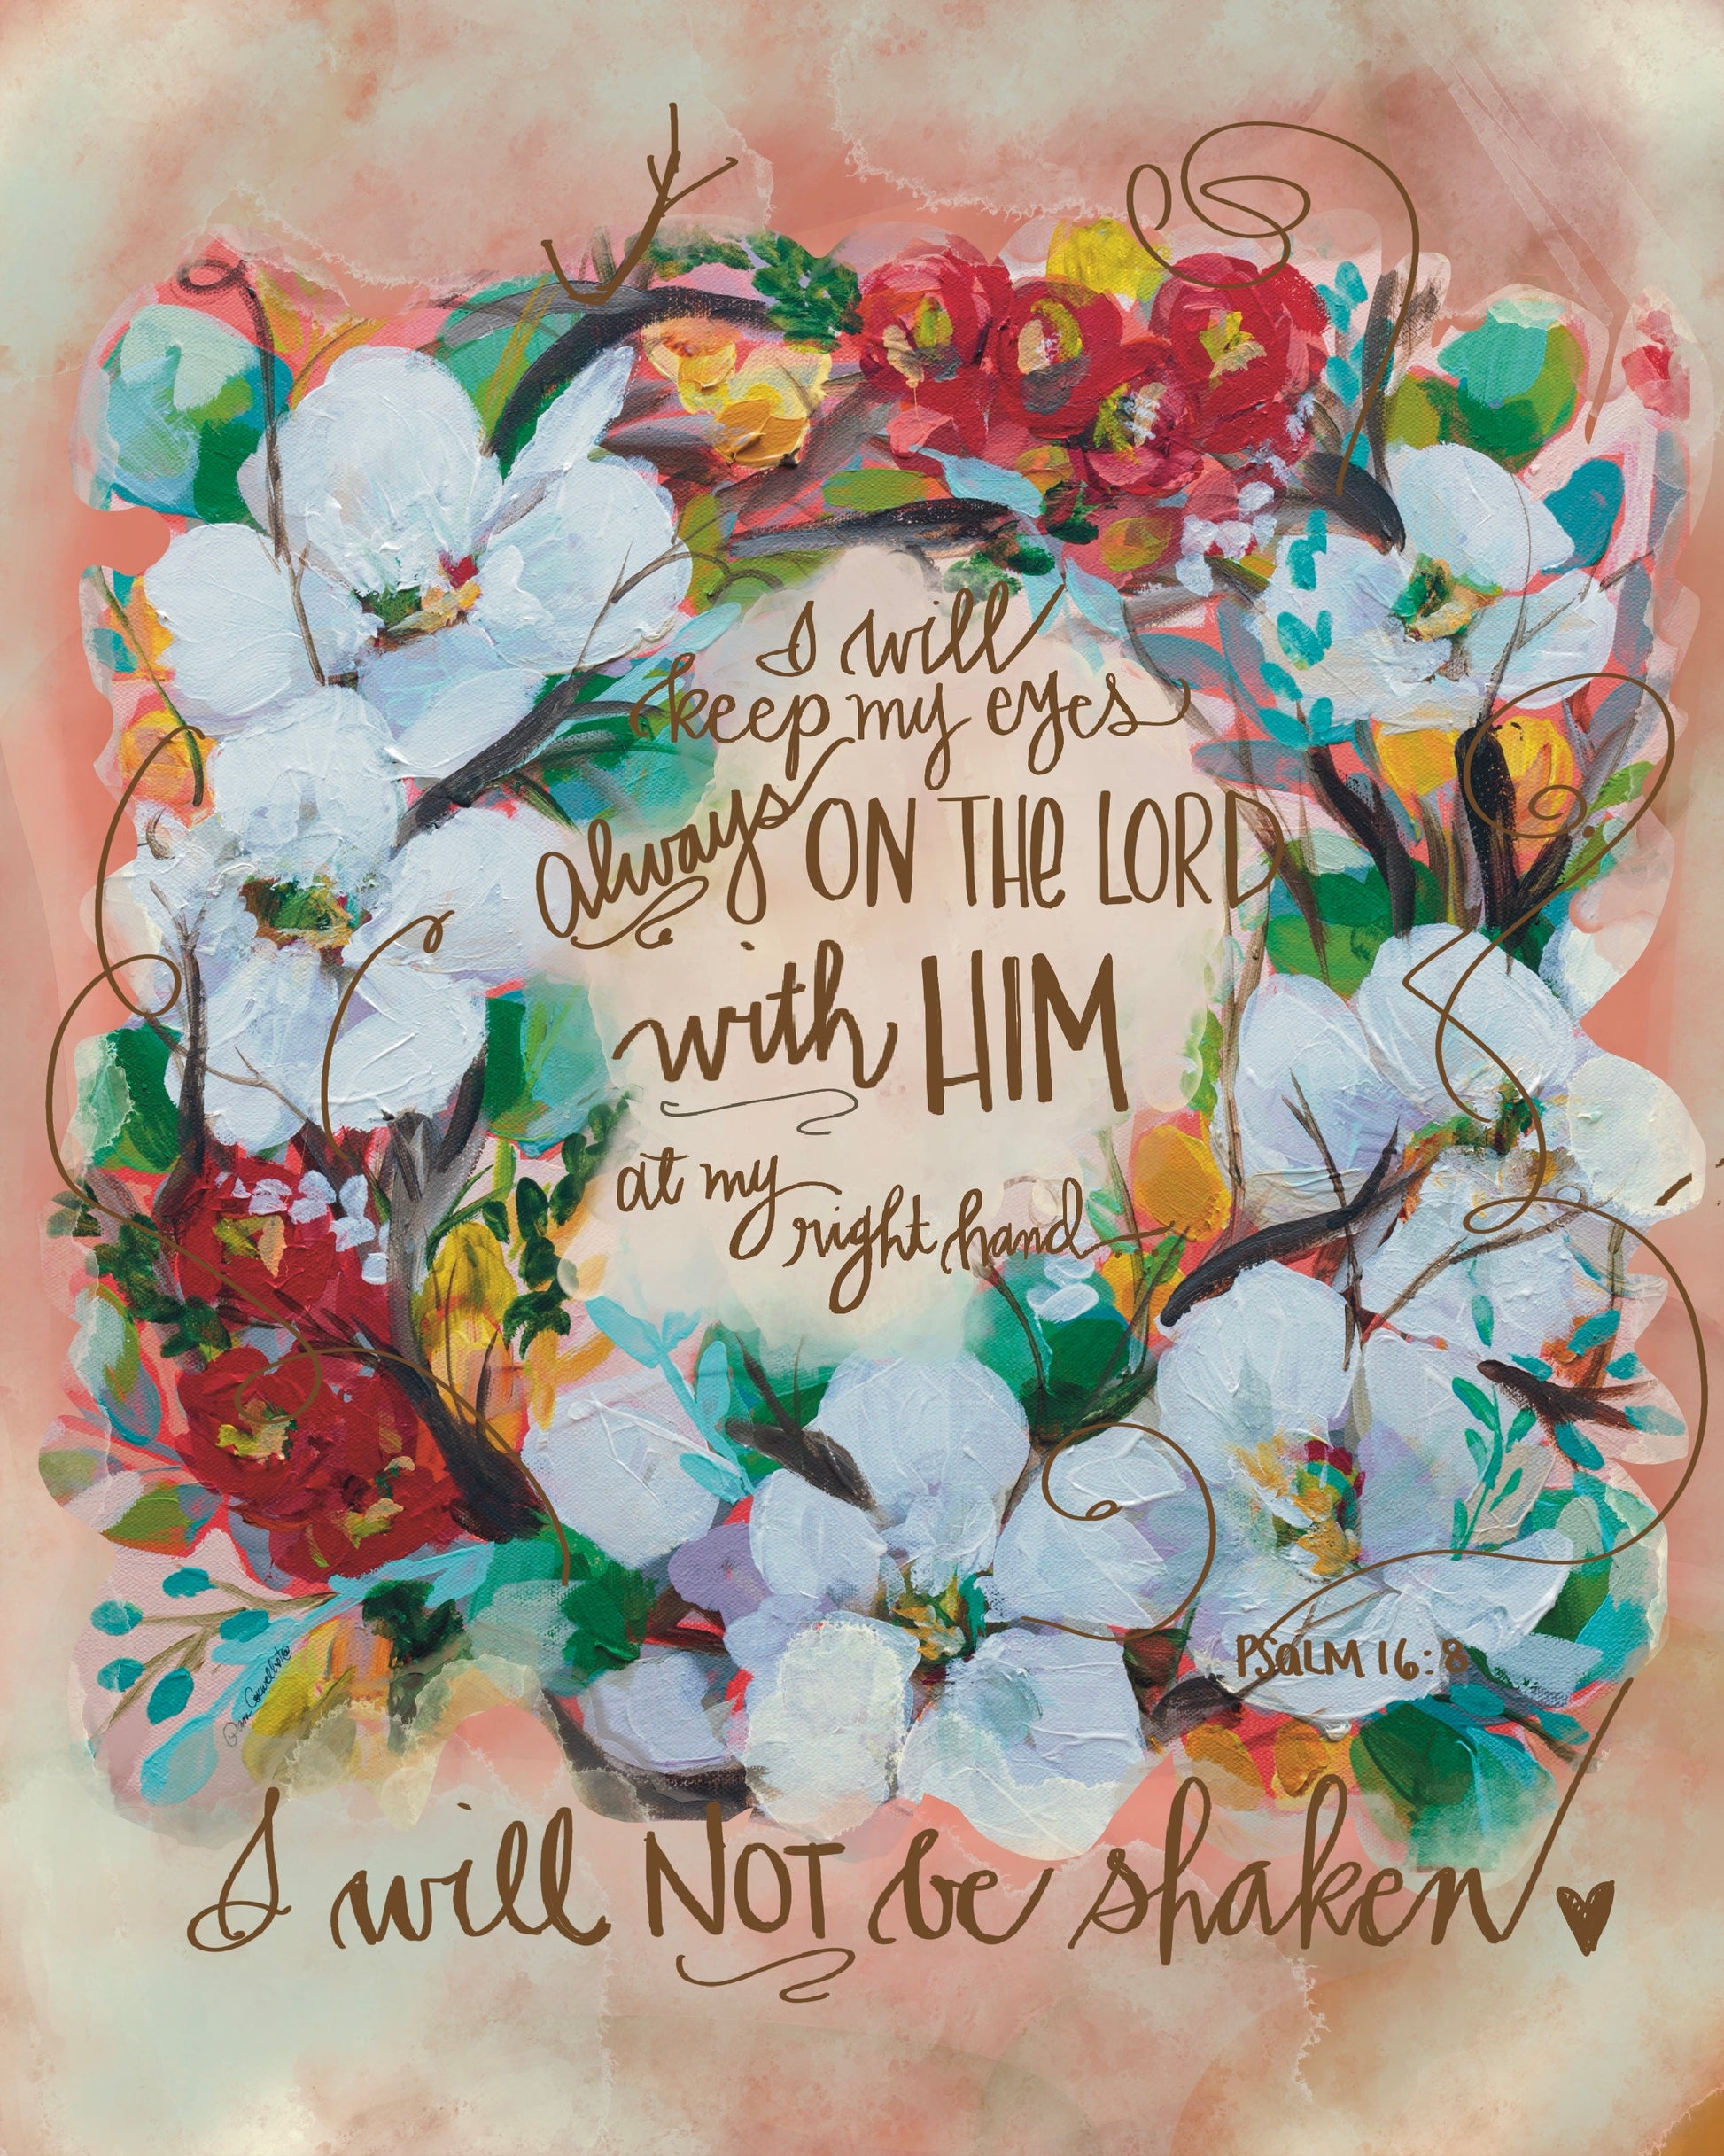 I will
keep my eyes
always ON THE LORD
with HIM
at my
right hand
PSALM 16:8
I will NOT be shaken!